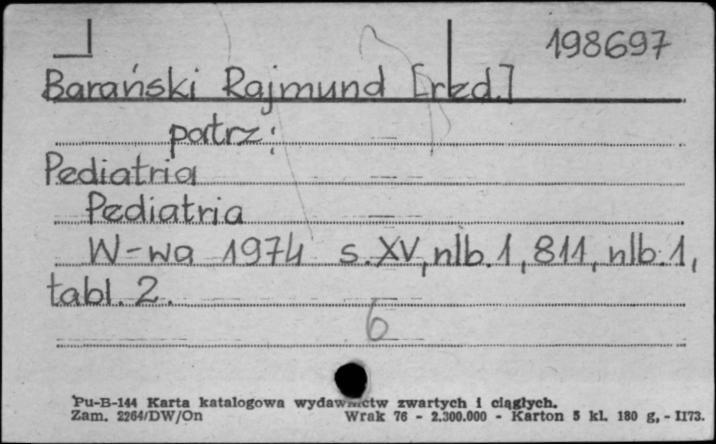 198697
Barański Rajmund [red.]
patrz:
Pediatria
Pediatria
W-wa 1974 s. XV, nlb. 1, 811, nlb. 1,
tabl. 2.
6
Pu-B-144 Karta katalogowa wydawnictw zwartych i ciągłych.
Zam. 2264/DW/On Wrak 76 - 2.300.000 - Karton 5 kl. 180 g. - II73.